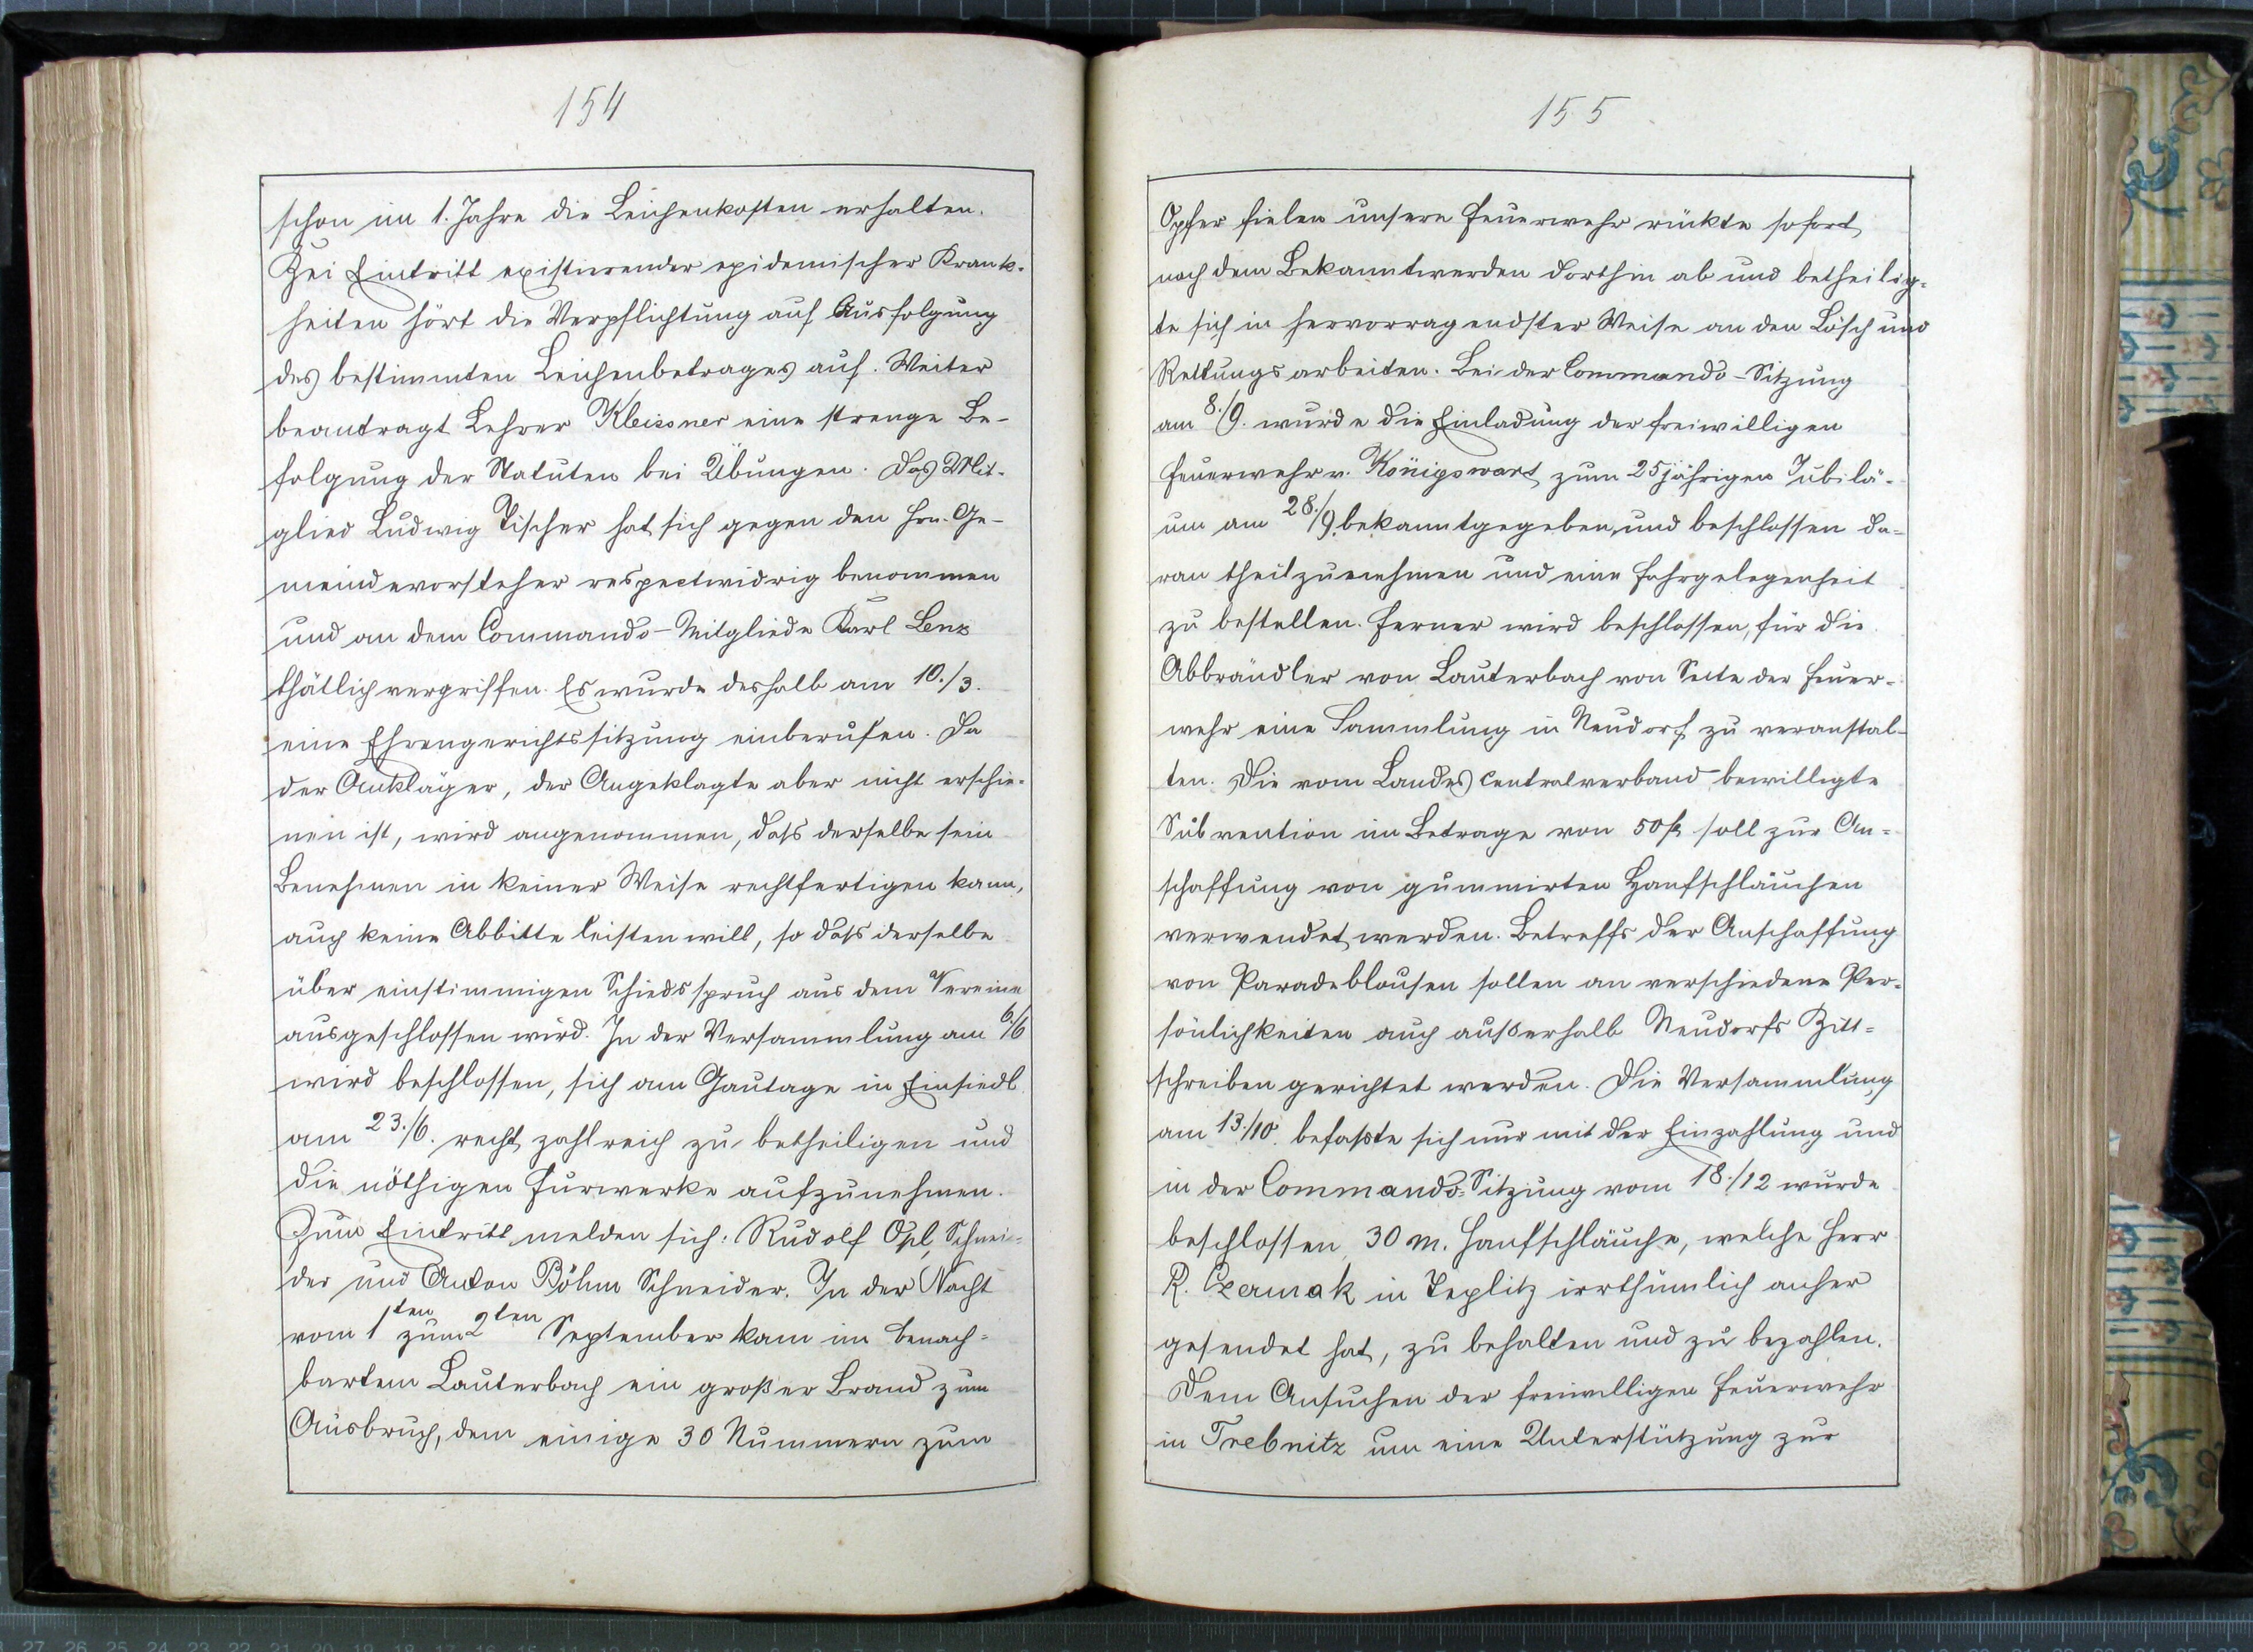 154
schon im 1. Jahre die Leichenkosten erhalten.
Bei Eintritt existierender epidemischer Krank-
heiten hört die Verpflichtung auf Ausfolgung
des bestimmten Leichenbetrages auf. Weiter
beantragt Lehrer Kleissner eine strenge Be-
folgung der Statuten bei Übungen. Das Mit-
glied Ludwig Tischer hat sich gegen den Hrn. Ge-
meindevorsteher respectwidrig benommen
und an dem Commando-Mitgliede Karl Lenz
thätlich vergriffen. Es wurde deshalb am 10./3.
eine Ehrengerichtssitzung einberufen. Da
der Ankläger, der Angeklagte aber nicht erschie-
nen ist, wird angenommen, daſs derselbe sein
Benehmen in keiner Weise rechtfertigen kann,
auch keine Abbitte leisten will, so daſs derselbe
über einstimmigen Schiedsspruch aus dem Vereine
ausgeschlossen wird. In der Versammlung am 6./6
wird beschlossen, sich am Gautage in Einsiedl
am 23./6. recht zahlreich zu betheiligen und
die nöthigen Furwerke aufzunehmen.
Zum Eintritt melden sich: Rudolf Opl, Schnei-
der und Anton Böhm Schneider. In der Nacht
vom 1ten zum 2ten September kam im benach-
bartem Lauterbach ein großer Brand zum
Ausbruch, dem einige 30 Nummern zum
155
Opfer fielen unsere Feuerwehr rückte sofort
nach dem Bekanntwerden dorthin ab und betheilig-
te sich in hervorragendster Weise an den Lösch und
Rettungsarbeiten. Bei der Commando-Sitzung
am 8./9. wurde die Einladung der freiwilligen
Feuerwehr v. Königswart zum 25jährigen Jubilä-
um am 28./9. bekanntgegeben, und beschlossen da-
ran theilzunehmen und eine Fahrgelegenheit
zu bestellen. Ferner wird beschlossen, für die
Abbrändler von Lauterbach von Seite der Feuer-
wehr eine Sammlung in Neudorf zu veranstal-
ten. Die vom Landes Centralverband bewilligte
Subvention im Betrage von 50 f. soll zur An-
schaffung von gummirten Hanfschläuchen
verwendet werden. Betreffs der Anschaffung
von Paradeblousen sollen an verschiedene Per-
sönlichkeiten auch außerhalb Neudorfs Bitt-
schreiben gerichtet werden. Die Versammlung
am 13./10. befaßte sich nur mit der Einzahlung und
in der Commando-Sitzung vom 18./12 wurde
beschlossen, 30 m. Hanfschläuche, welche Herr
R. Czermak in Teplitz irrthümlich anher
gesendet hat, zu behalten und zu bezahlen.
Dem Ansuchen der freiwilligen Feuerwehr
in Trebnitz um eine Unterstützung zur